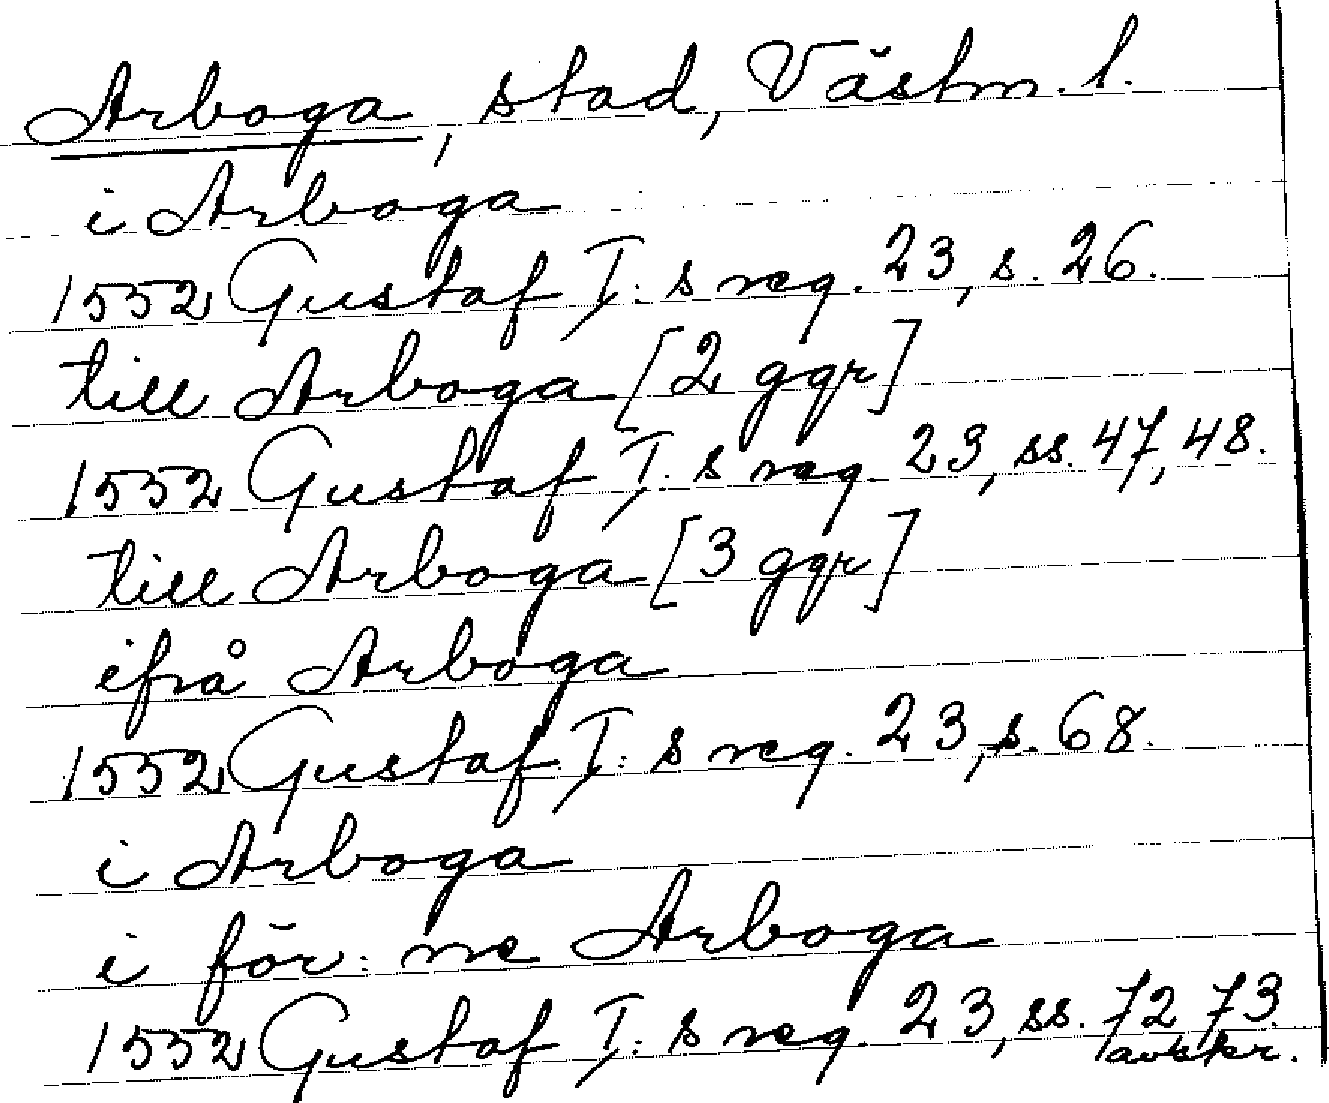 Arboga, stad, Västm. l.
i Arboga
1552 Gustaf I: s reg. 23, s. 26.
till Arboga [2 ggr]
1552 Gustaf I: s reg. 23, ss. 47, 48.
till Arboga [3 ggr]
ifrå Arboga
1552 Gustaf I: s reg. 23, s. 68.
i Arboga
i för: ne Arboga
1552 Gustaf I: s reg. 23, ss. 72 73.
avskr.